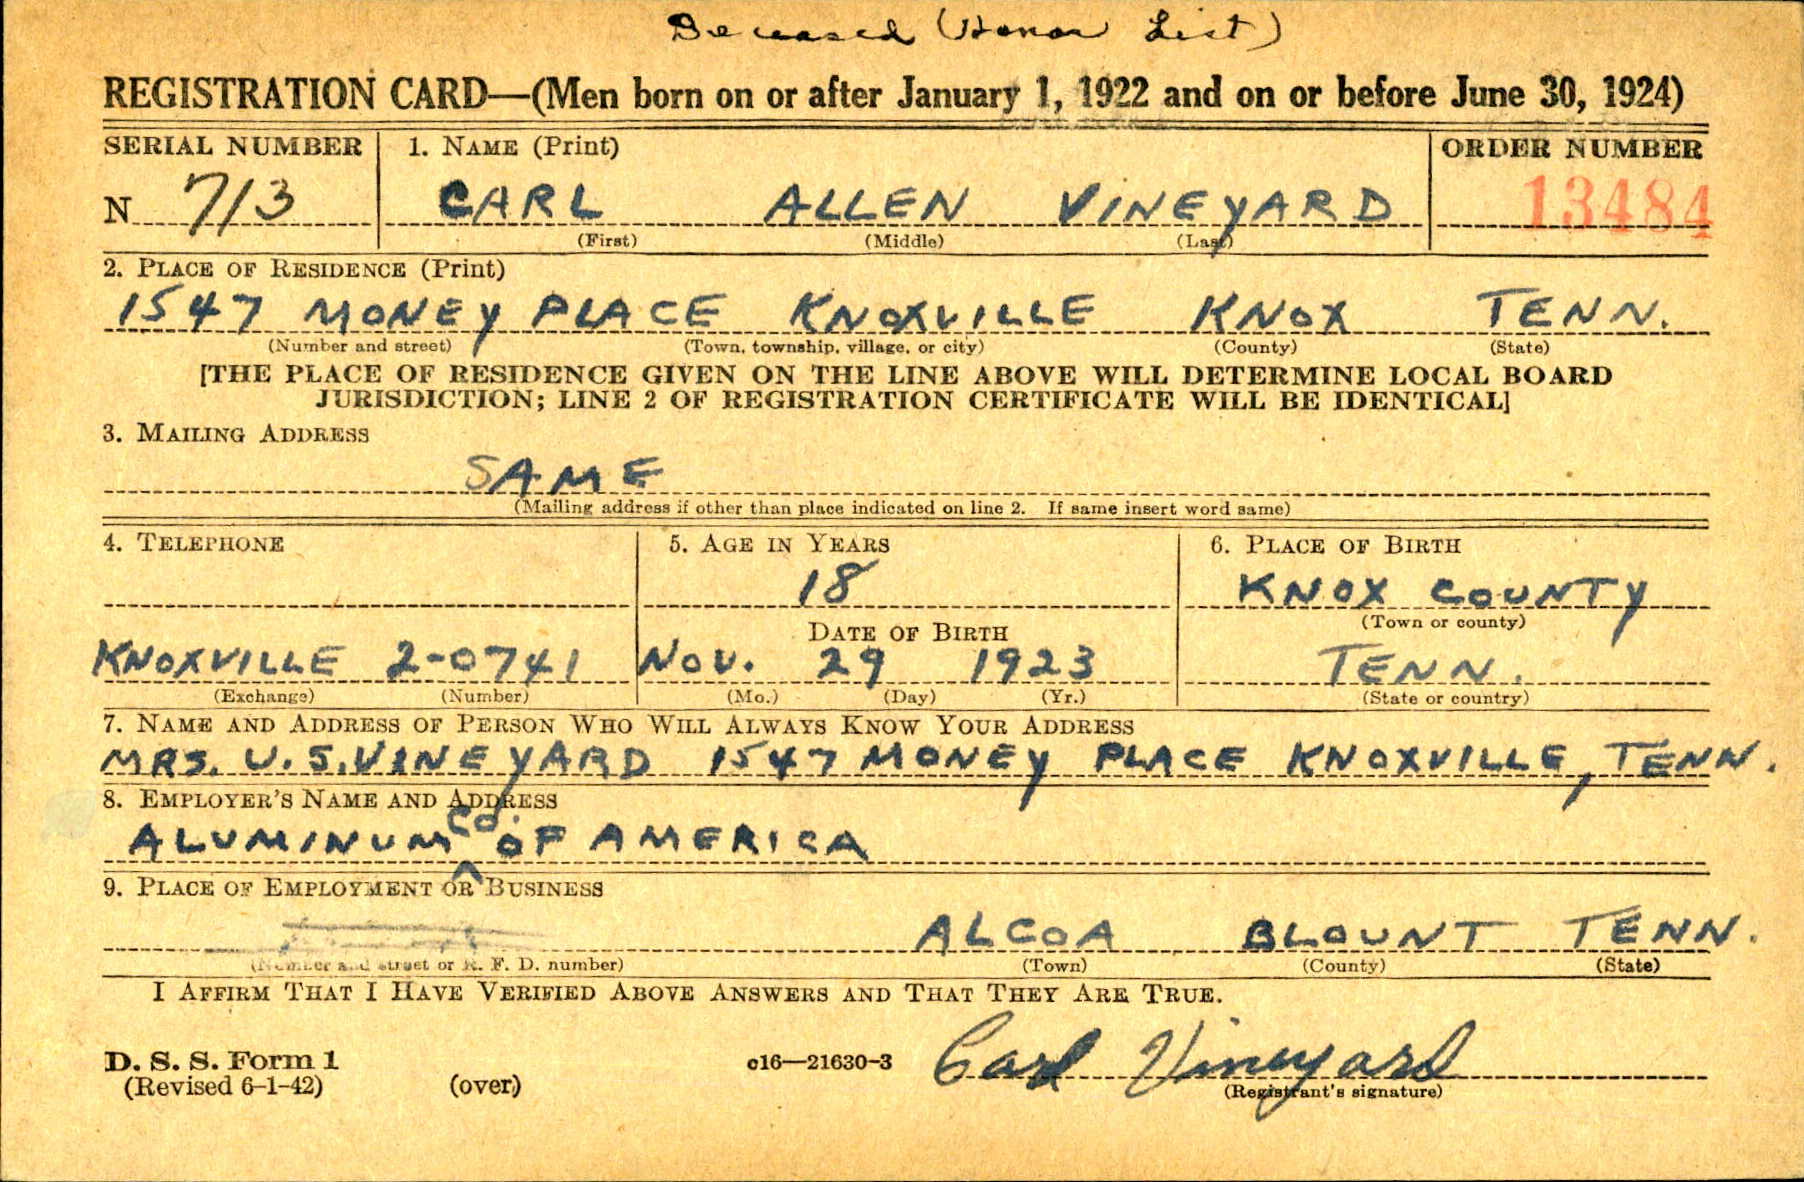 Deceased (Honor List)
REGISTRATION CARD—(Men born on or after January 1, 1922 and on or before June 30, 1924)
SERIAL NUMBER 1. NAME (Print) ORDER NUMBER
N 713 CARL ALLEN VINEYARD 13484
(First) (Middle) (Last)
2. PLACE OF RESIDENCE (Print)
1547 MONEY PLACE KNOXVILLE KNOX TENN.
(Number and street) (Town, township, village, or city) (County) (State)
[THE PLACE OF RESIDENCE GIVEN ON THE LINE ABOVE WILL DETERMINE LOCAL BOARD
JURISDICTION; LINE 2 OF REGISTRATION CERTIFICATE WILL BE IDENTICAL]
3. MAILING ADDRESS
SAME
(Mailing address if other than place indicated on line 2. If same insert word same)
4. TELEPHONE 5. AGE IN YEARS 6. PLACE OF BIRTH
18 KNOX COUNTY
(Town or county)
DATE OF BIRTH
KNOXVILLE 2-0741 NOV. 29 1923 TENN.
(Exchange) (Number) (Mo.) (Day) (Yr.) (State or country)
7. NAME AND ADDRESS OF PERSON WHO WILL ALWAYS KNOW YOUR ADDRESS
MRS. U.S. VINEYARD 1547 MONEY PLACE KNOXVILLE, TENN.
8. EMPLOYER'S NAME AND ADDRESS
ALUMINUM CO. OF AMERICA
9. PLACE OF EMPLOYMENT OR BUSINESS
ALCOA BLOUNT TENN.
(Number and street or R. F. D. number) (Town) (County) (State)
I AFFIRM THAT I HAVE VERIFIED ABOVE ANSWERS AND THAT THEY ARE TRUE.
D. S. S. Form 1 c16—21630-3 Carl Vineyard
(Revised 6-1-42) (over) (Registrant's signature)